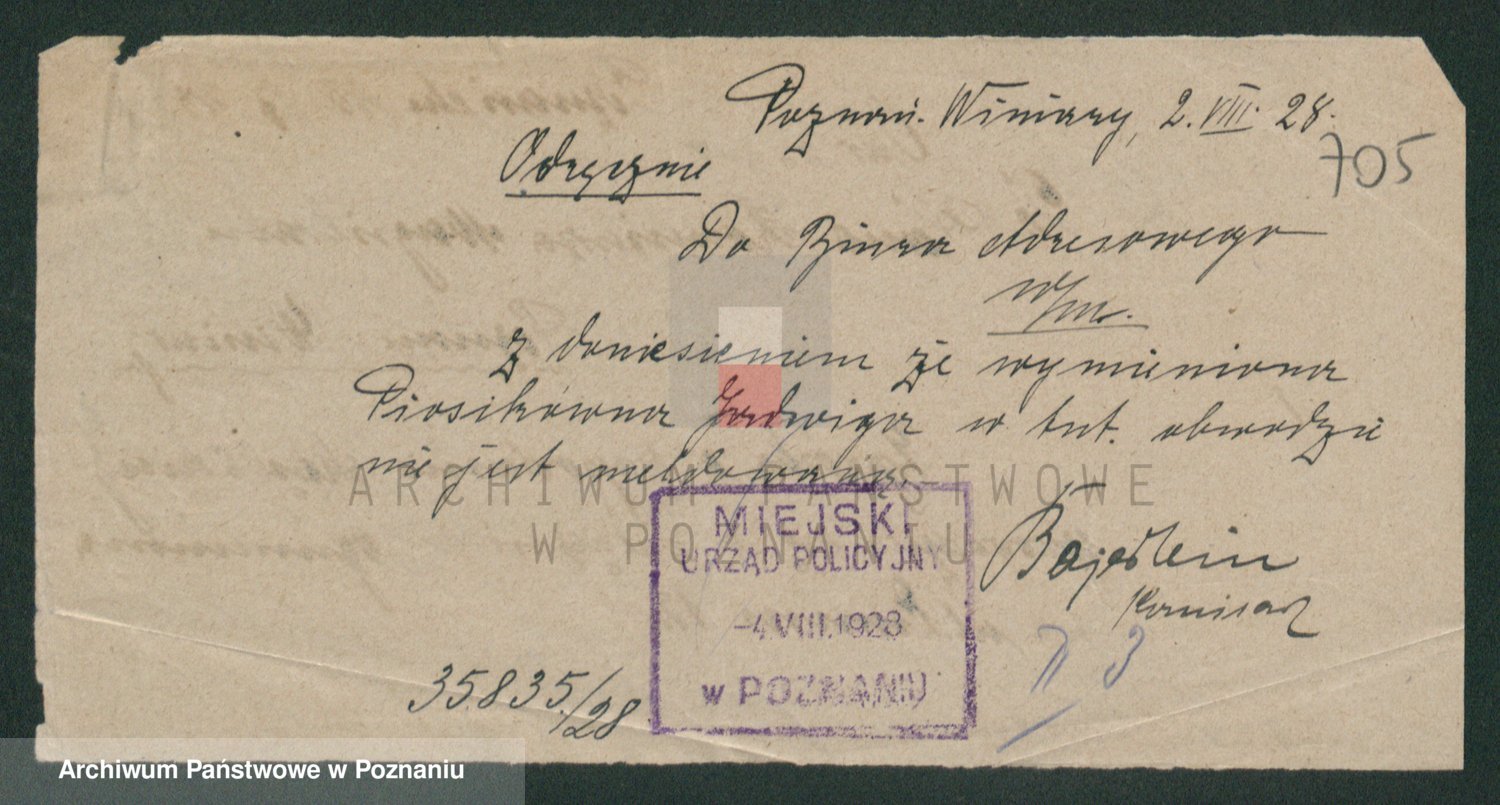 Poznań. Winiary, 2. VIII. 28.
705
Odręcznie
Do Biura Adresowego
w/m.
z doniesieniem że wymieniona
Piosikówna Jadwiga w tut. obwodzie
nie jest meldowana.
ARCHIWUM PAŃSTWOWE
W POZNANIU
MIEJSKI
URZĄD POLICYJNY
-4.VIII.1928
w POZNANIU
Komisarz
35.835./28
Archiwum Państwowe w Poznaniu